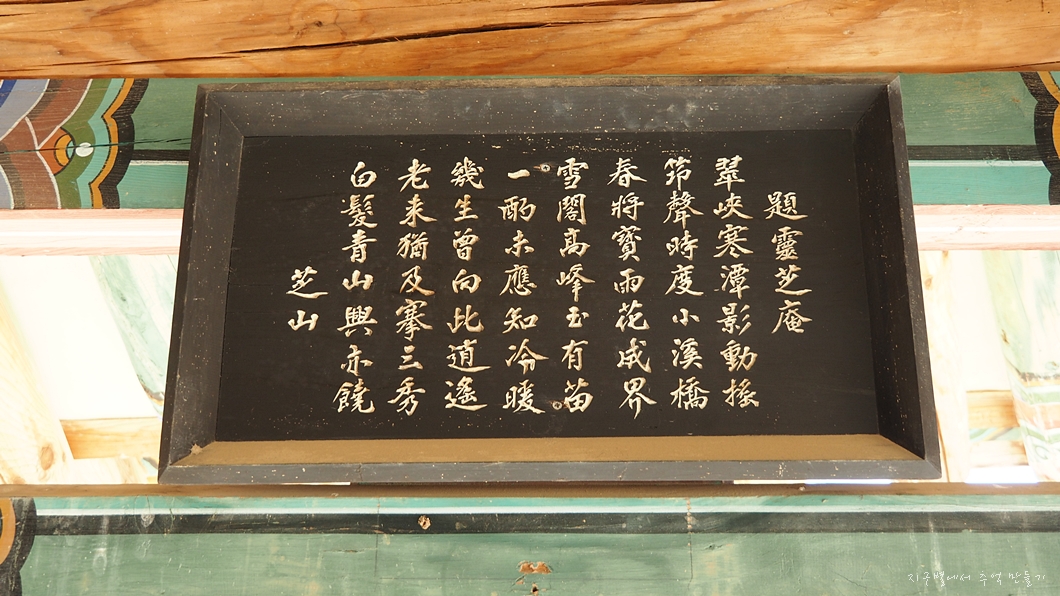 題靈芝庵
翠峽寒潭影動搖
笻聲時度小溪橋
春將寶雨花成界
雪閣高峰玉有苗
一酌未應知冷暖
幾生曾向此逍遙
老来猶及搴三秀
白髮青山興亦饒
芝山
지구별에서 추억 만들기